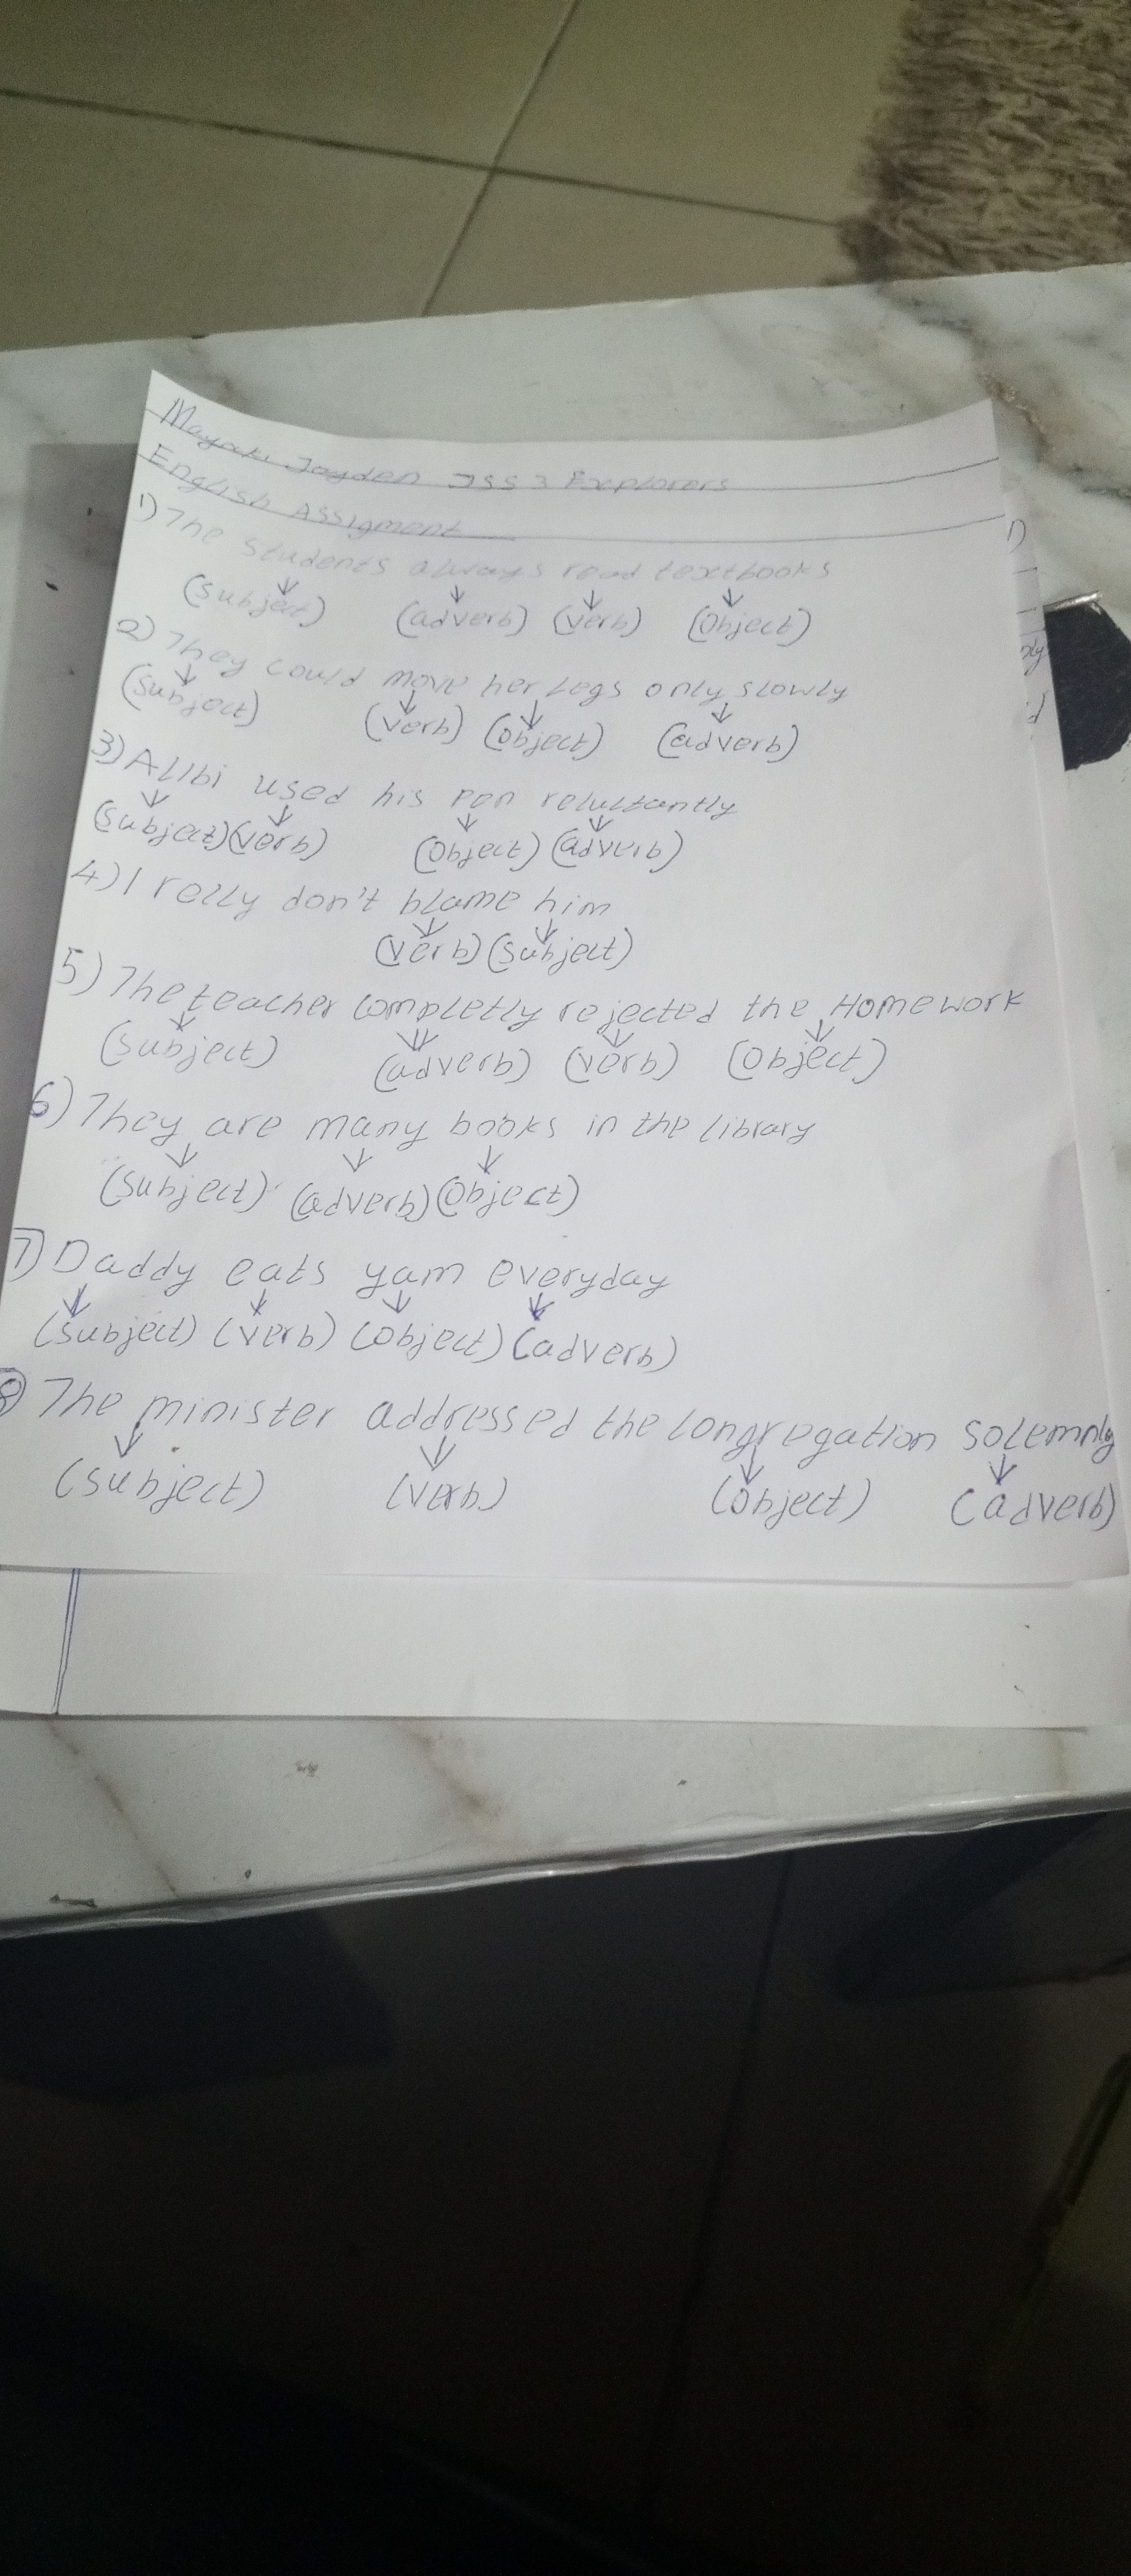 Mayaki Jayden JSS 3 Explorers
English Assigment
1) The students always read textbooks
(subject) (adverb) (verb) (Object)
2) They could move her legs only slowly
(subject) (verb) (object) (adverb)
3) Alibi used his pen reluctantly
(subject) (verb) (object) (adverb)
4) I relly don't blame him
(verb) (subject)
5) The teacher completly rejected the Homework
(subject) (adverb) (verb) (object)
6) They are many books in the library
(subject) (adverb) (object)
7) Daddy eats yam everyday
(subject) (verb) (object) (adverb)
8 The minister addressed the congregation solemnly
(subject) (verb) (object) (adverb)
1)